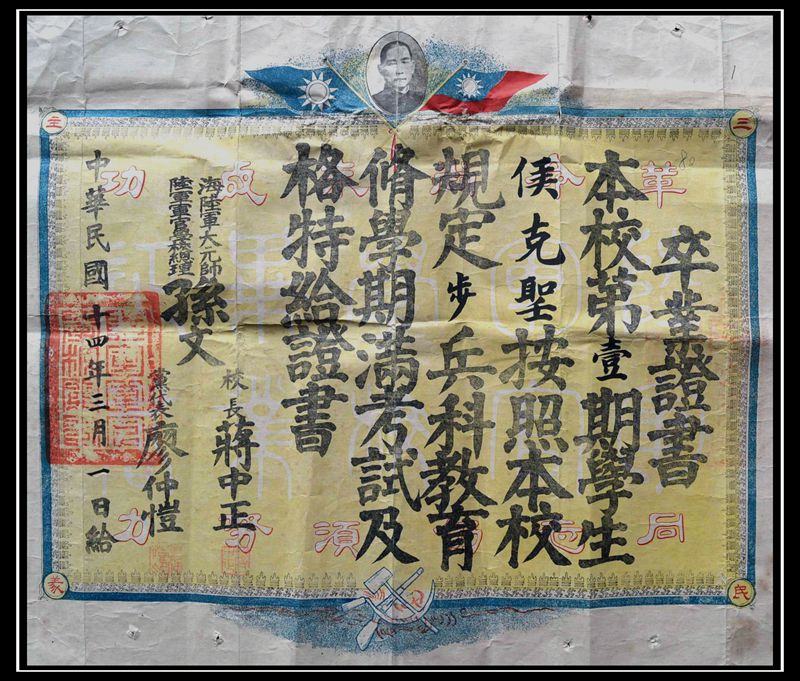 卒業證書
本校第壹期學生
侯克聖按照本校
規定步兵科教育
修學期滿考試及
格特給證書
海陸軍大元帥
陸軍軍官學校總理
孫文
校長蔣中正
黨代表廖仲愷
中華民國十四年三月一日給
三
民
主
義
革
命
尚
未
成
功
同
志
仍
須
努
力